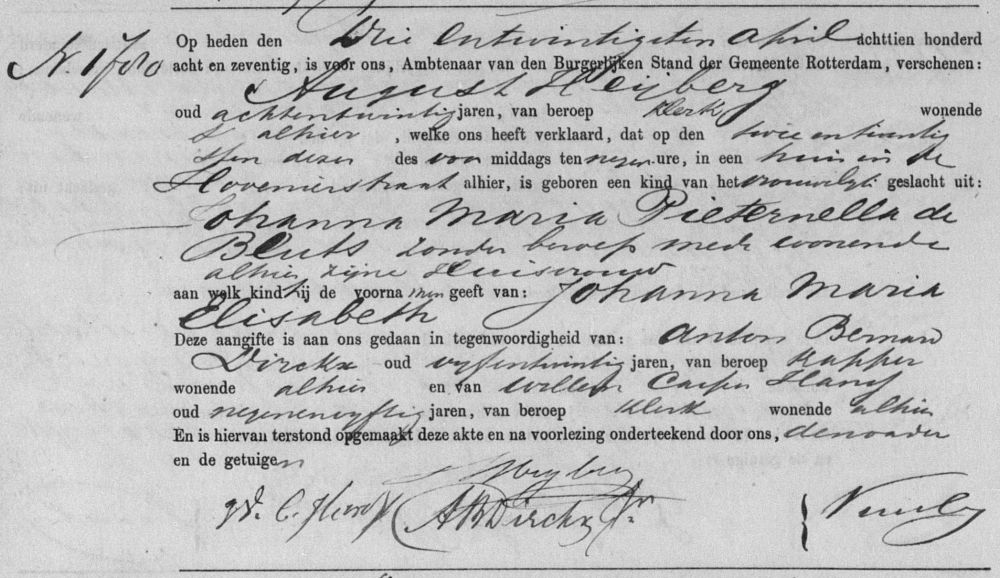 N. 1780 Op heden den Drie entwintigsten april achttien honderd
acht en zeventig, is voor ons, Ambtenaar van den Burgerlijken Stand der Gemeente Rotterdam, verschenen:
August Heijberg
oud achtentwintig jaren, van beroep klerk wonende
alhier, welke ons heeft verklaard, dat op den twee entwintig
sten dezer des voor middags ten negen ure, in een huis in de
Hovenierstraat alhier, is geboren een kind van het vrouwelijk geslacht uit:
Johanna Maria Pieternella de
Bluts zonder beroep mede wonende
alhier zijne Huisvrouw
aan welk kind hij de voorna men geeft van: Johanna Maria
Elisabeth
Deze aangifte is aan ons gedaan in tegenwoordigheid van: Anton Bernard
Dirckx oud vyfentwintig jaren, van beroep Kapper
wonende alhier en van Willem Casper
oud negenenvyftig jaren, van beroep klerk wonende alhier
En is hiervan terstond opgemaakt deze akte en na voorlezing onderteekend door ons, den vader
en de getuigen
Heyberg
A B Dirckx Jr.